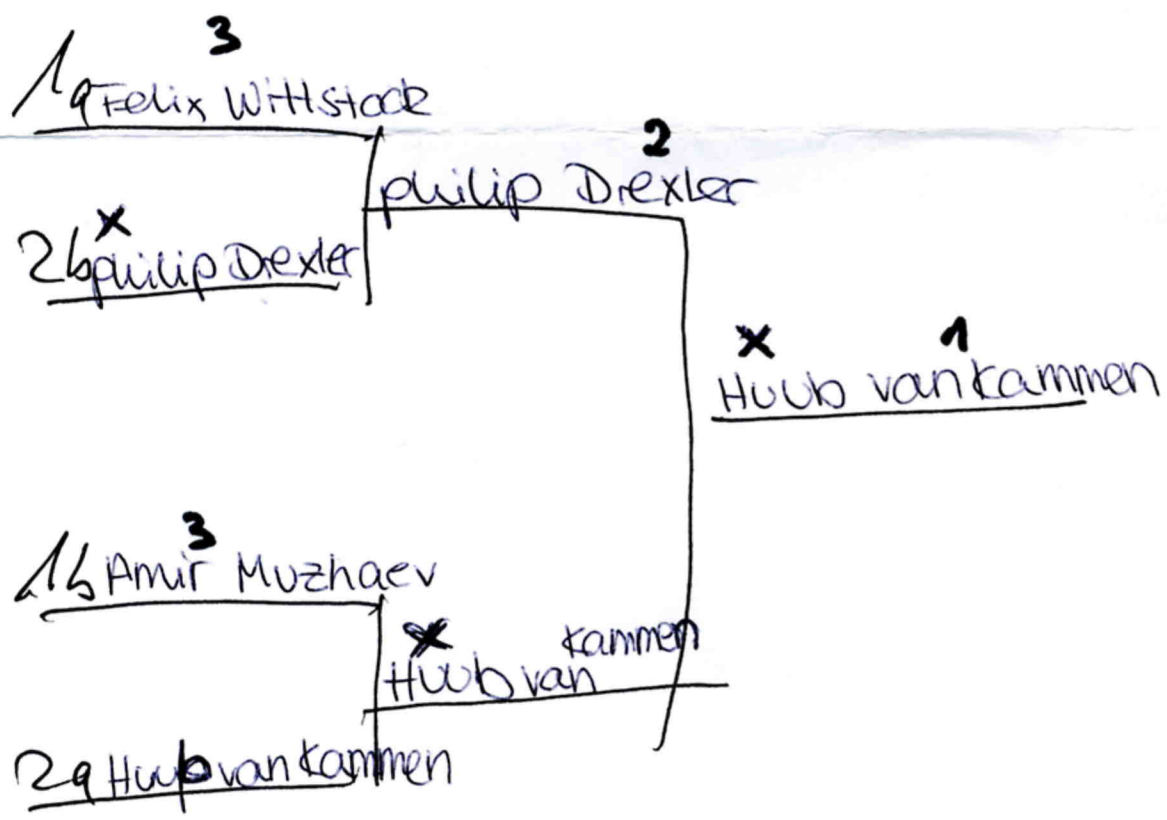 3
1a Felix Wittstock
2
philip Drexler
x
2b philip Drexler
x 1
Huub van Kammen
3
1b Amir Muzhaev
x
Huub van Kammen
2a Huub van Kammen